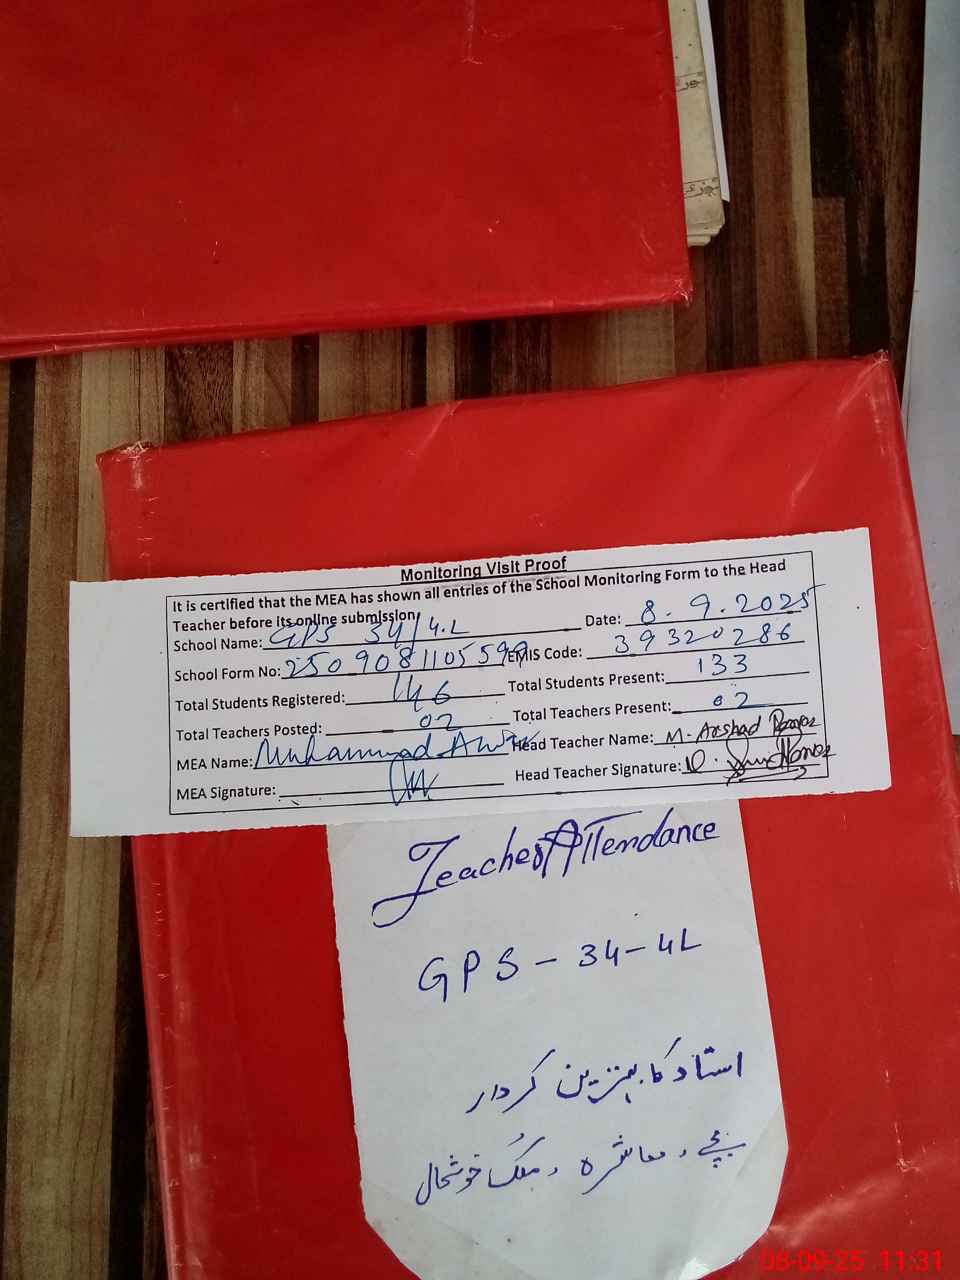 Monitoring Visit Proof
It is certified that the MEA has shown all entries of the School Monitoring Form to the Head
Teacher before its online submission
School Name: GPS 34/4.L Date: 8.9.2025
School Form No: EMIS Code: 39320286
Total Students Registered: 146 Total Students Present: 133
Total Teachers Posted: 02 Total Teachers Present: 02
MEA Name: Muhammad Head Teacher Name: M. Arshad
MEA Signature: Head Teacher Signature:
Teacher Attendance
GPS - 34-4L
استاد کا بہترین کردار
بچے، معاشرہ، ملک خوشحال
08-09-25 11:31